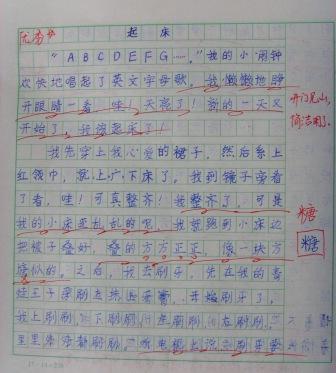 优秀
起床
“ABCDEFG……”我的小闹钟
欢快地唱起了英文字母歌，我懒懒地睁
开眼睛一看，哇！天亮了！新的一天又
开始了，我该起床了！
我先穿上我心爱的裙子，然后系上
红领巾，就上广下床了。我到镜子旁看
了看，哇！可真整齐！我整齐了，可是
我的小床还乱乱的呢，我就跑到小床边
把被子叠好，叠的方方正正，像一块方
糖似的。之后，我去刷牙，先在我的
开始刷牙了。
我上刷刷，下刷刷，左刷刷，右刷刷，
里里外外都刷刷，听电视上说
开门见山，
简洁明了。
糖
糖